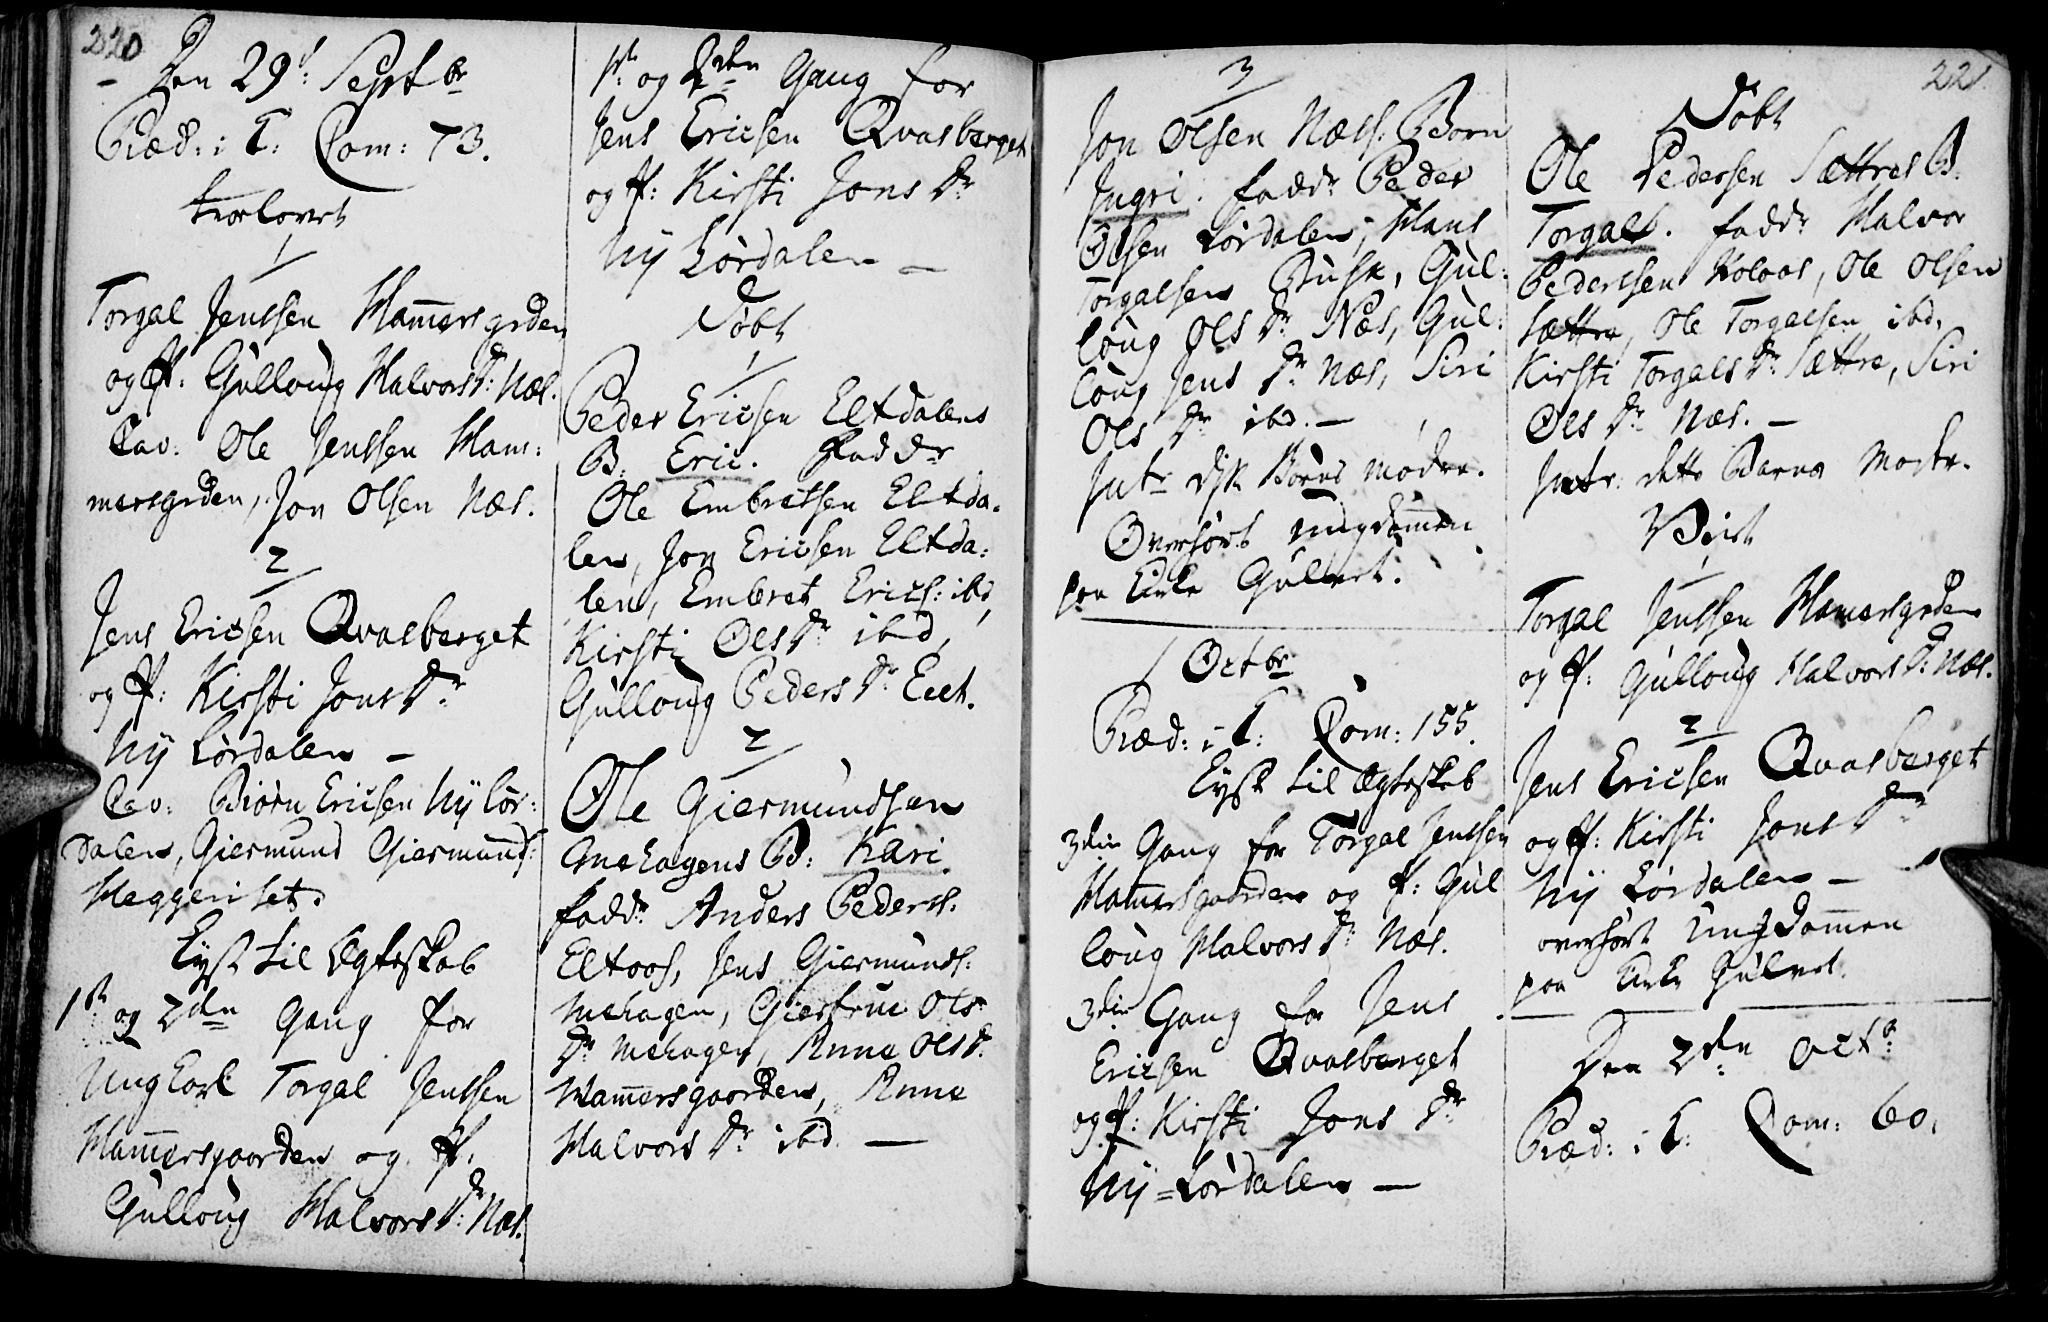 220
Den 29 Septbr
Præd: i T: Com: 73.
trolovet
1
Torgal Jenssen Hamersgrden
og ff: Gulloug Halvors Dr: Næs.
Cav: Ole Jenssen Ham:
mersgrden, Jon Olsen Næs.
2
Jens Ericsen Qvasberget
og ff: Kirsti Jons Dr
Ny Lørdalen –
Cav: Biørn Ericsen Nylør:
dalen, Giermund Giermunds:
Heggeriset.
Lyst til Ægteskab
1st og 2den Gang for
Ungkarl Torgal Jenssen
Hamersgaarden og ff:
Gulloug Halvors Dr: Næs.
1st og 2den Gang for
Jens Ericsen Qvasberget
og ff: Kirsti Jons Dr
Ny Lørdalen –
Døbt
1
Peder Ericsen Eltdalens
B: Eric. Faddr
Ole Embretsen Eltda:
len, Jon Ericsen Eltda:
len, Embret Erics: ibd,
Kirsti Ols Dr ibd,
Gulloug Peders Dr Eltt.
2
Ole Giermundsen
Mehagens B: Kari.
Faddr Anders Peders:
Eltaas, Jens Giermunds:
Mehagen, Giertrue Ols
Dr Mehagen, Anne Ols Dr
Hamersgaarden, Anne
Halvors Dr ibd. —
3
Jon Olsen Næss: Born
Ingri. Faddr Peder
Olsen Lørdalen, Hans
Torgalsen Busk, Gul:
loug Ols Dr Næs, Gul:
loug Jens Dr Næs, Siri
Ols Dr ibd. –
Intr disse Børns Mødre.
Overhørt Ungdommen
paa Kirke Gulvet.
1 Octbr
Præd: i T: Com: 155.
Lyst til Ægteskab
3die Gang for Torgal Jenssen
Hamersgaarden og ff: Gul
loug Halvors Dr Næs.
3die Gang for Jens
Ericsen Qvasberget
og ff: Kirsti Jons Dr
Ny=Lørdalen —
221
Døbt
Ole Pedersen Sættres B:
Torgals. Faddr Halvor
Pedersen Kolaas, Ole Olsen
Sættre, Ole Torgalsen ibd.
Kirsti Torgals Dr Sættre, Siri
Ols Dr Næs. –
Intr: dette Barns Moder.
Viet
1
Torgal Jenssen Hamersgrden
og ff: Gulloug Halvors Dr: Næs.
2
Jens Ericsen Qvasberget
og ff: Kirsti Jons Dr
Ny Lørdalen –
overhørt Ungdommen
paa Kirke Gulvet.
Den 2den Octb:
Præd: i T: Com: 60.